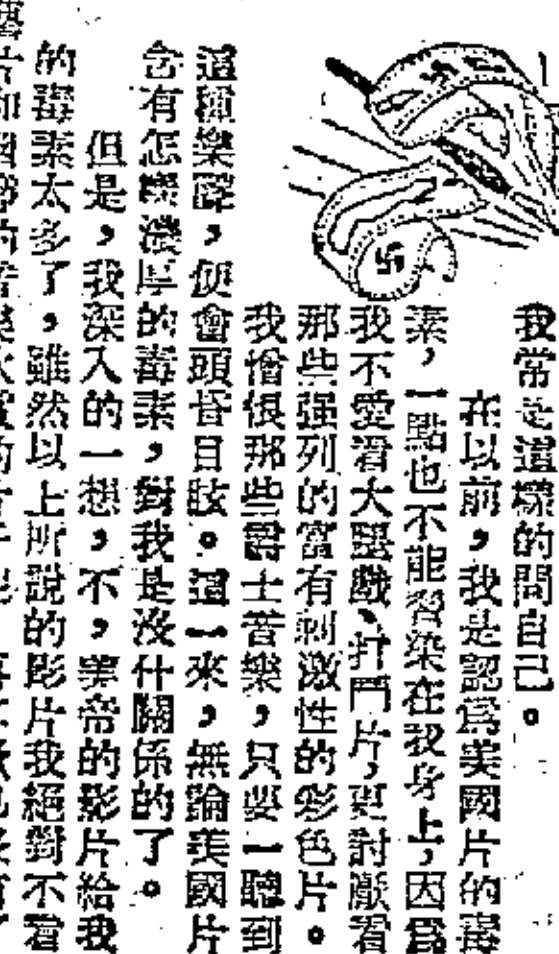 我常是這樣的問自己。
在以前，我是認爲美國片的毒
素，一點也不能習染在我身上，因爲
我不愛看大腿戲、打鬥片，更討厭看
那些强列的富有刺激性的彩色片。
我憎恨那些爵士音樂，只要一聽到
這種樂聲，便會頭昏目眩。這一來，無論美國片
含有怎樣濃厚的毒素，對我是沒什關係的了。
但是，我深入的一想，不，美帝的影片給我
的毒素太多了，雖然以上所說的影片我絕對不看